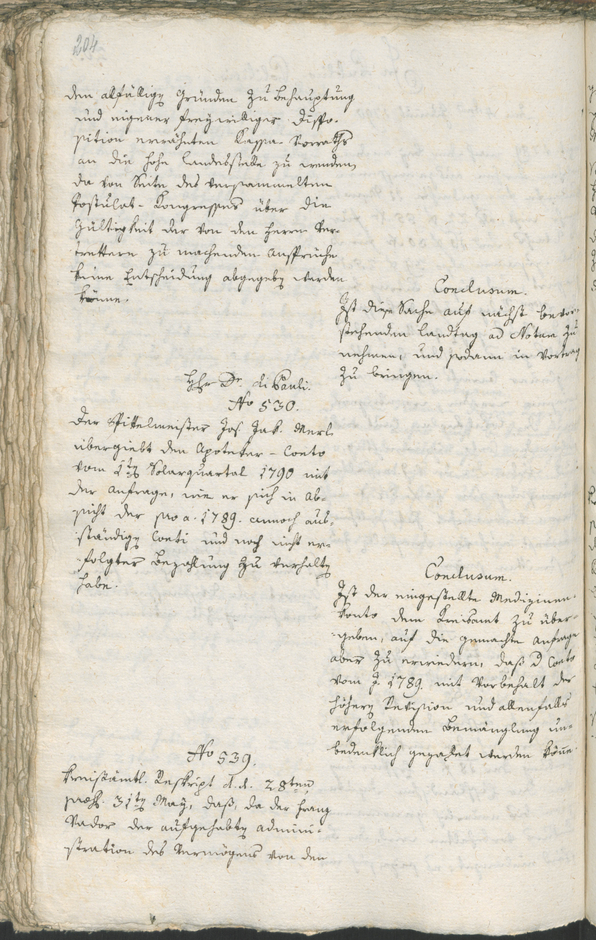 204
den allfälligen Gründen zu Behauptung
und eigener freywilliger Dispo-
sition erwähnten Cassa Vorraths
an die hohe Landesstelle zu wenden,
da von Seite des versammelten
Postulat-Kongresses über die
Gültigkeit der von den Herrn Ver-
trettern zu machenden Ansprüche
keine Entscheidung abgegeben werden
könne.
Conclusum.
Ist diese Sache auf nächst bevor-
stehenden Landtag ad Notam zu
nehmen, und sodann in Vortrag
zu bringen.
Hr. Dr. di Pauli.
No 530.
Der Spittelmeister Jos. Jak. Merl
übergiebt den Apoteker-Conto
vom 1ten Solarquartal 1790 mit
der Anfrage, wie er sich in Ab-
sicht der pro a. 1789. annoch aus-
ständigen Conti und noch nicht er-
folgter Bezahlung zu verhalten
habe.
Conclusum.
Ist der eingestellte Medizinen-
Konto dem Kreisamt zu über-
geben, auf die gemachte Anfrage
aber zu erwiedern, daß d Conto
vom J. 1789. mit Vorbehalt der
höhern Revision und allenfalls
erfolgenden Bemänglung un-
bedenklich gezahlt werden könne.
No 539.
Kreisämtl. Reskript d. d. 28ten
praes. 31ten May, daß, da der Franz
Vador der aufgehabten admini-
stration des Vermögens von den